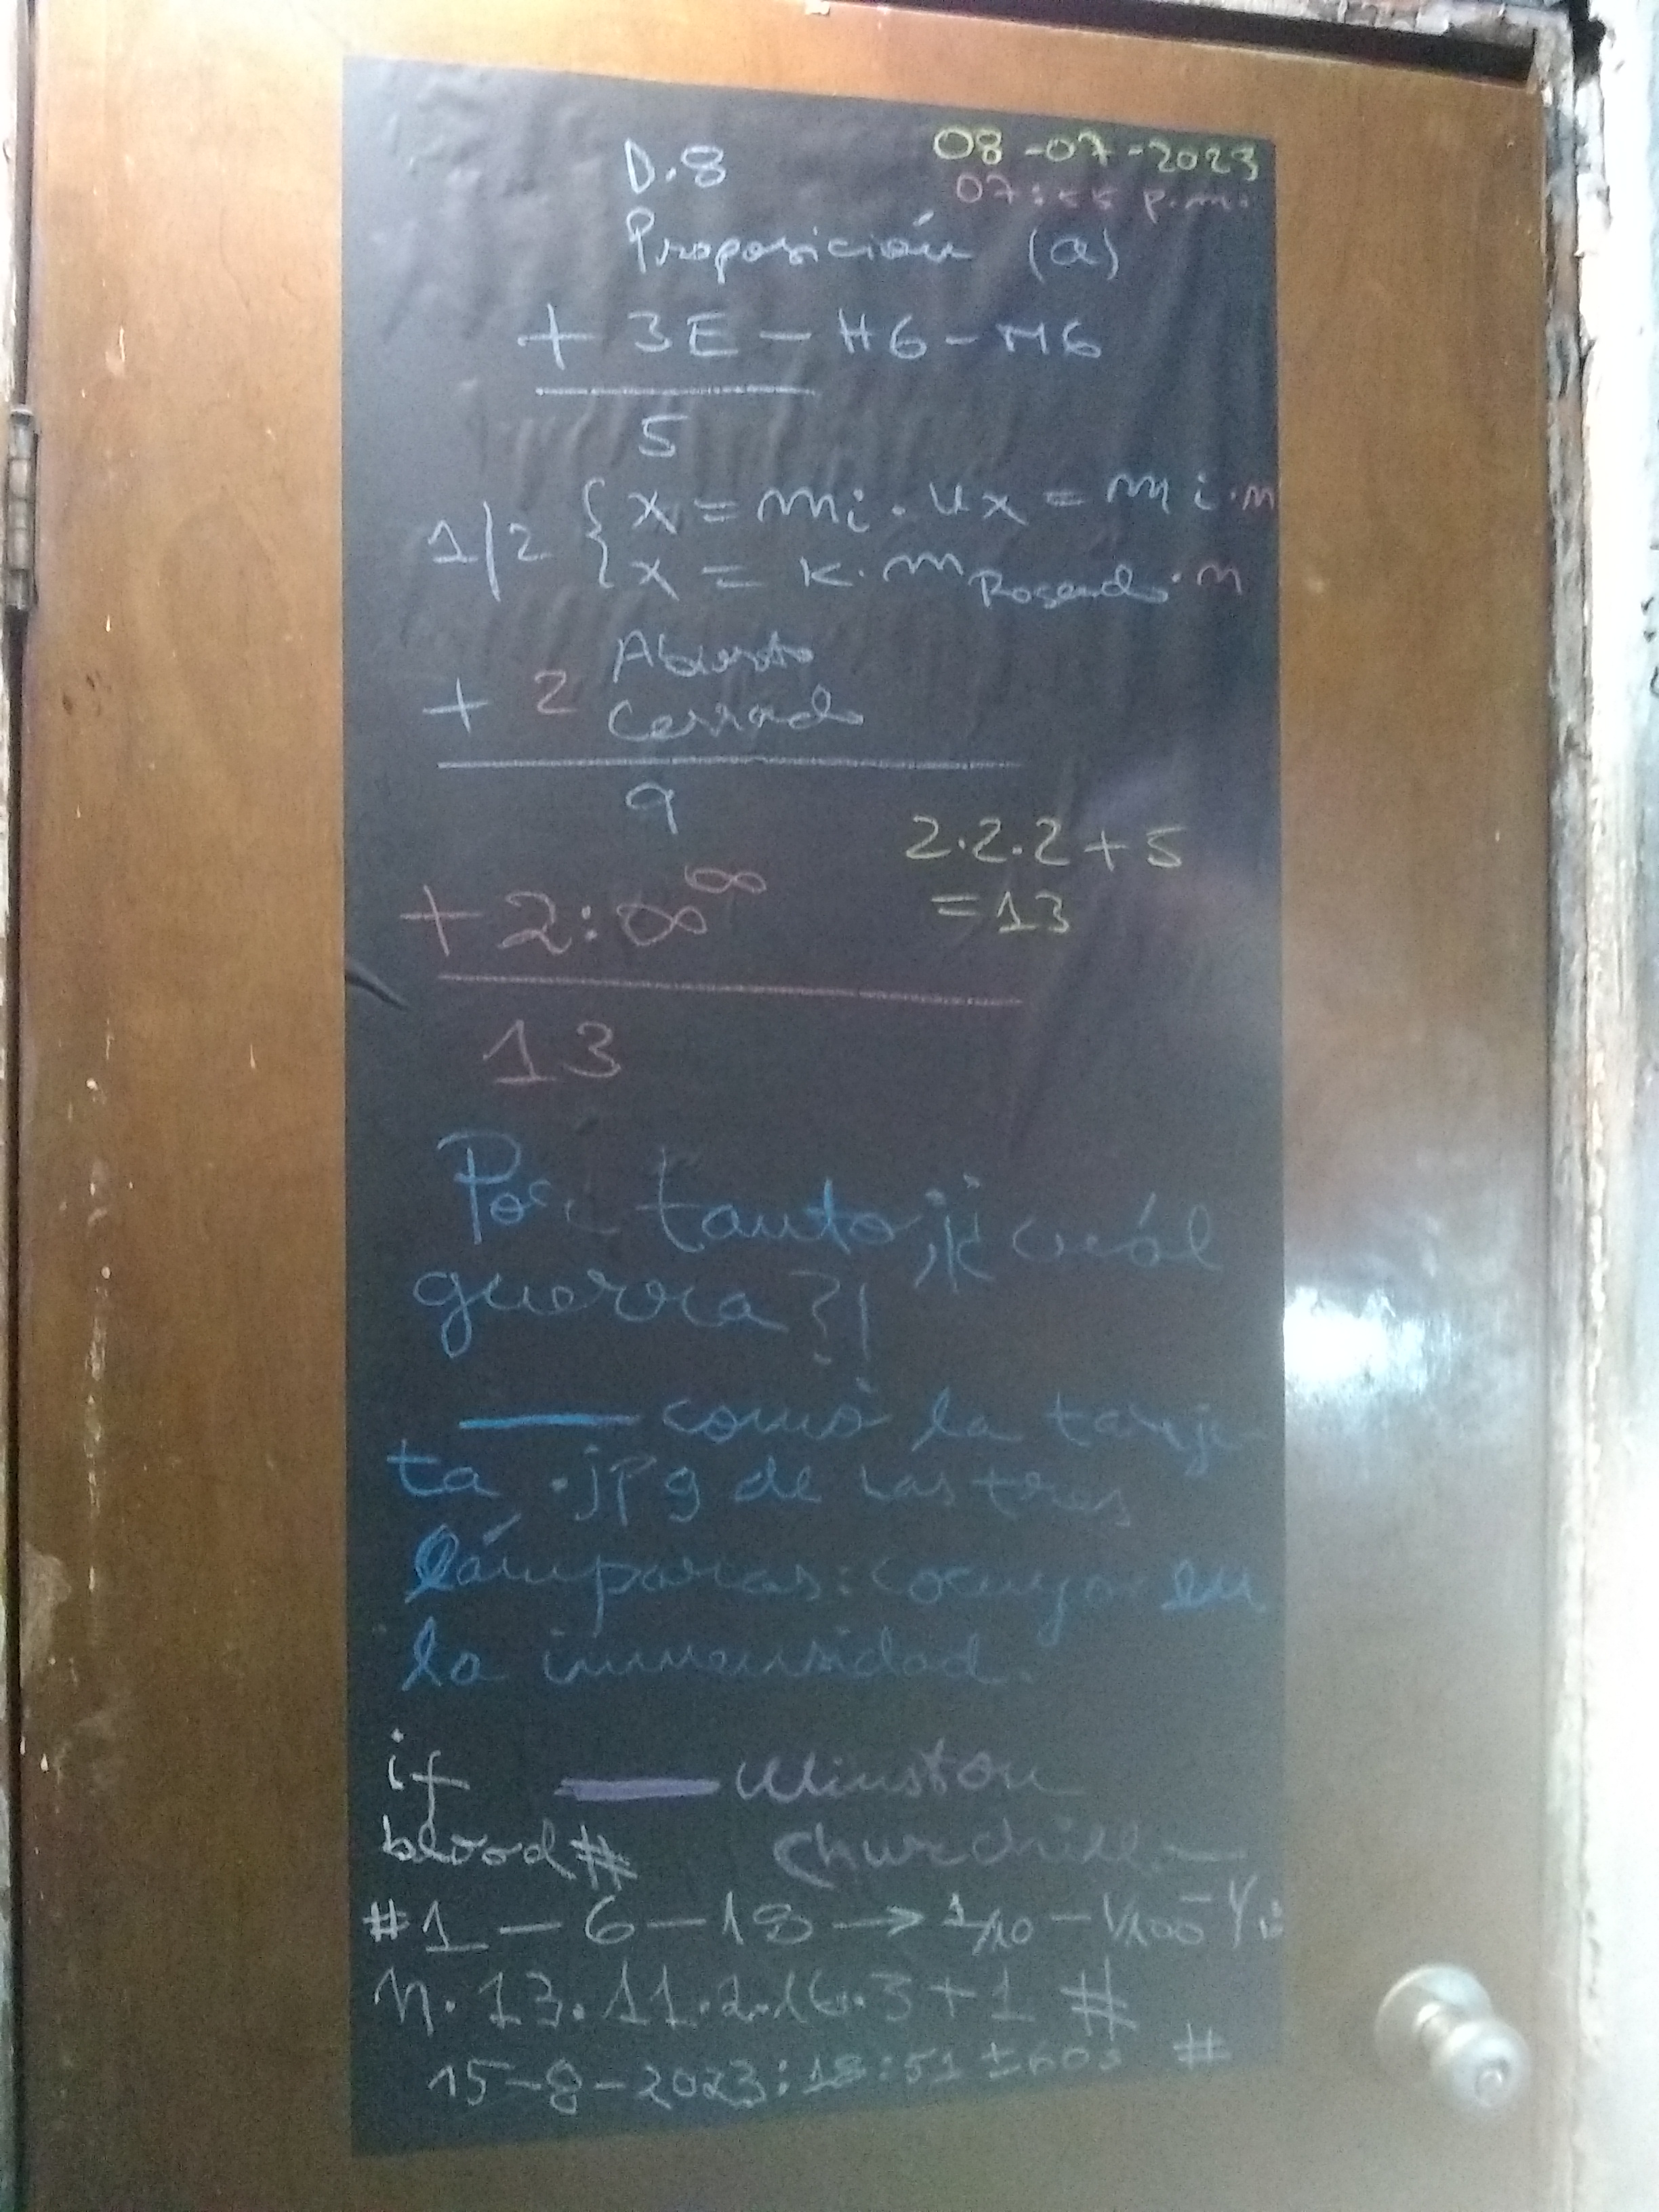 D.8
08-07-2023
07:55 p.m.
Proposición (a)
+ 3E - H6 - M6
5
1/2 { x = mi . ux = mi . n
x = k . m Rosendo . n
Abierto
+ 2 Cerrado
9
2.2.2 + 5
= 13
+ 2:∞^∞
13
Por tanto, ¡¿cuál
guerra?!
— como la tarje-
ta .jpg de las tres
lámparas: en
la inmensidad.
if — Winston
blood# Churchill
#1 - 6 - 18 → 1/10 - 1/100 -
n. 13. 11. 2. 16. 3 + 1 #
15-8-2023:18:51 ±60s #